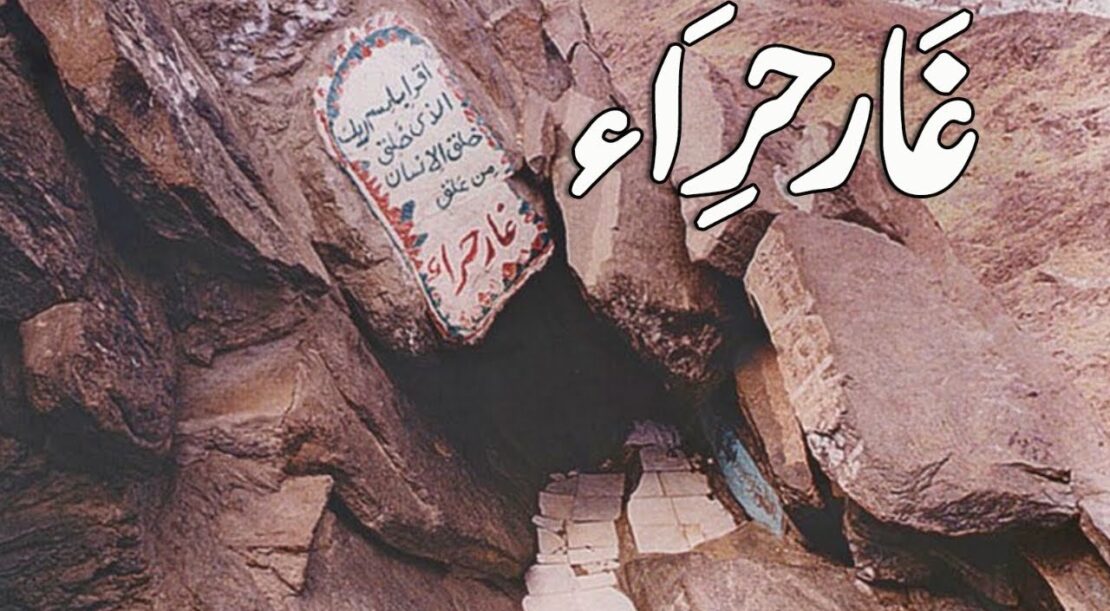 غَار حِرَاء
اقرا باسم ربك
الذي خلق
خلق الانسان
من علق
غار حراء